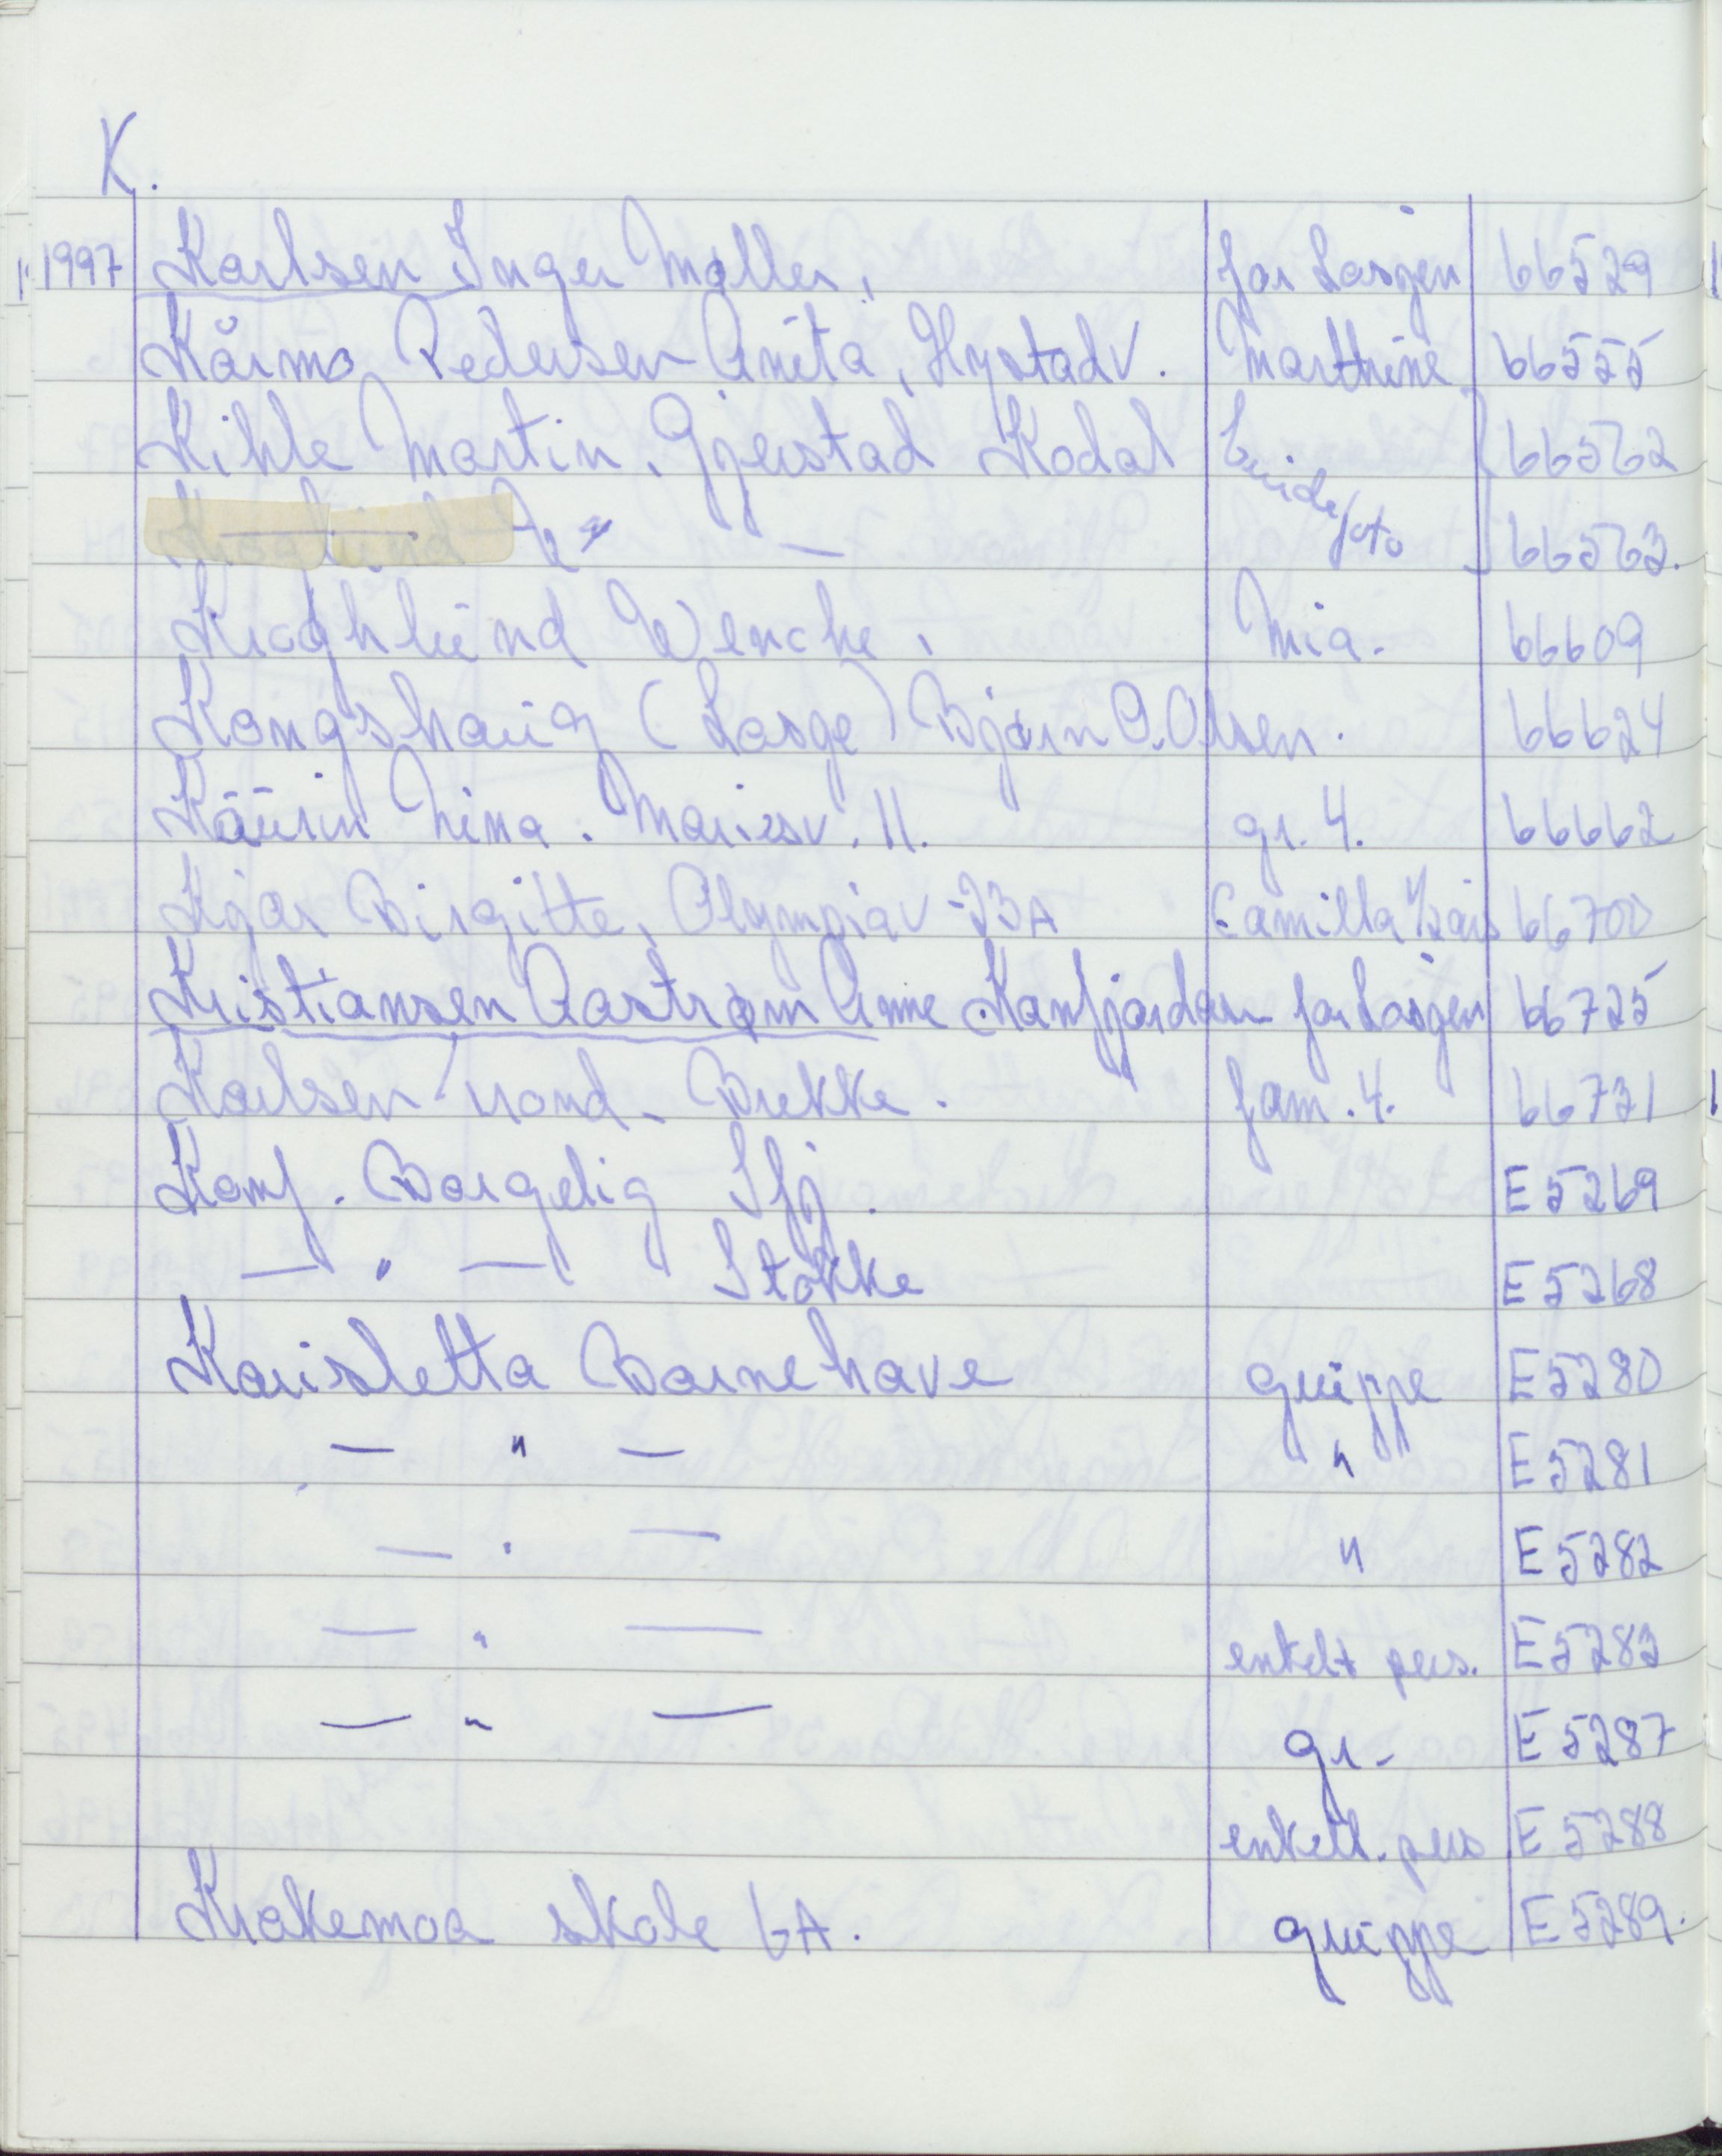 K.
1997 Karlsen Inger Møller, for Lasjen 66529
Kårmo Pedersen Anita, Hystadv. Marthine 66555
Kihle Martin, Gjerstad Kodal brude 66562
— " — foto 66563.
Kroghlund Wenche, Mia. 66609
Kongshaug (Lasge) Bjørn O. Olsen. 66624
Kaurin Nina. Mariesv. 11. gr. 4. 66662
Kjær Birgitte, Olympiav - 23A Camilla 66700
Kristiansen Aastrøm Anne Kamfjordv for Lasjen 66725
Karlsen Trond - Brekke. fam. 4. 66731
Konf. Borgelig Sfj. E 5269
— " — Stokke E 5268
Karisletta Barnehave gruppe E 5280
— " — " E 5281
— " — " E 5282
— " — enkelt pers. E 5283
— " — gr- E 5287
enkelt. pers E 5288
Krokemoa skole 6A. gruppe E 5289.